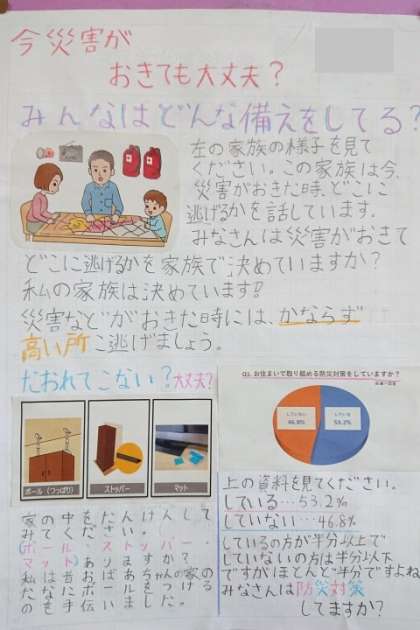 今災害が
おきても大丈夫？
みんなはどんな備えをしてる？
左の家族の様子を見て
ください。この家族は今、
災害がおきた時、どこに
逃げるかを話しています。
みなさんは災害がおきて
どこに逃げるかを家族で決めていますか？
私の家族は決めています!!
災害などがおきた時には、かならず
高い所に逃げましょう。
たおれてこない？大丈夫？
ポール（つっぱり）
ストッパー
マット
Q3. お住まいで取り組める防災対策をしていますか？
していない
46.8%
している
53.2%
上の資料を見てください。
している…53.2%
していない…46.8%
しているの方が半分以上で
していないの方は半分以下
ですがほとんど半分ですよね
みなさんは防災対策
してますか？